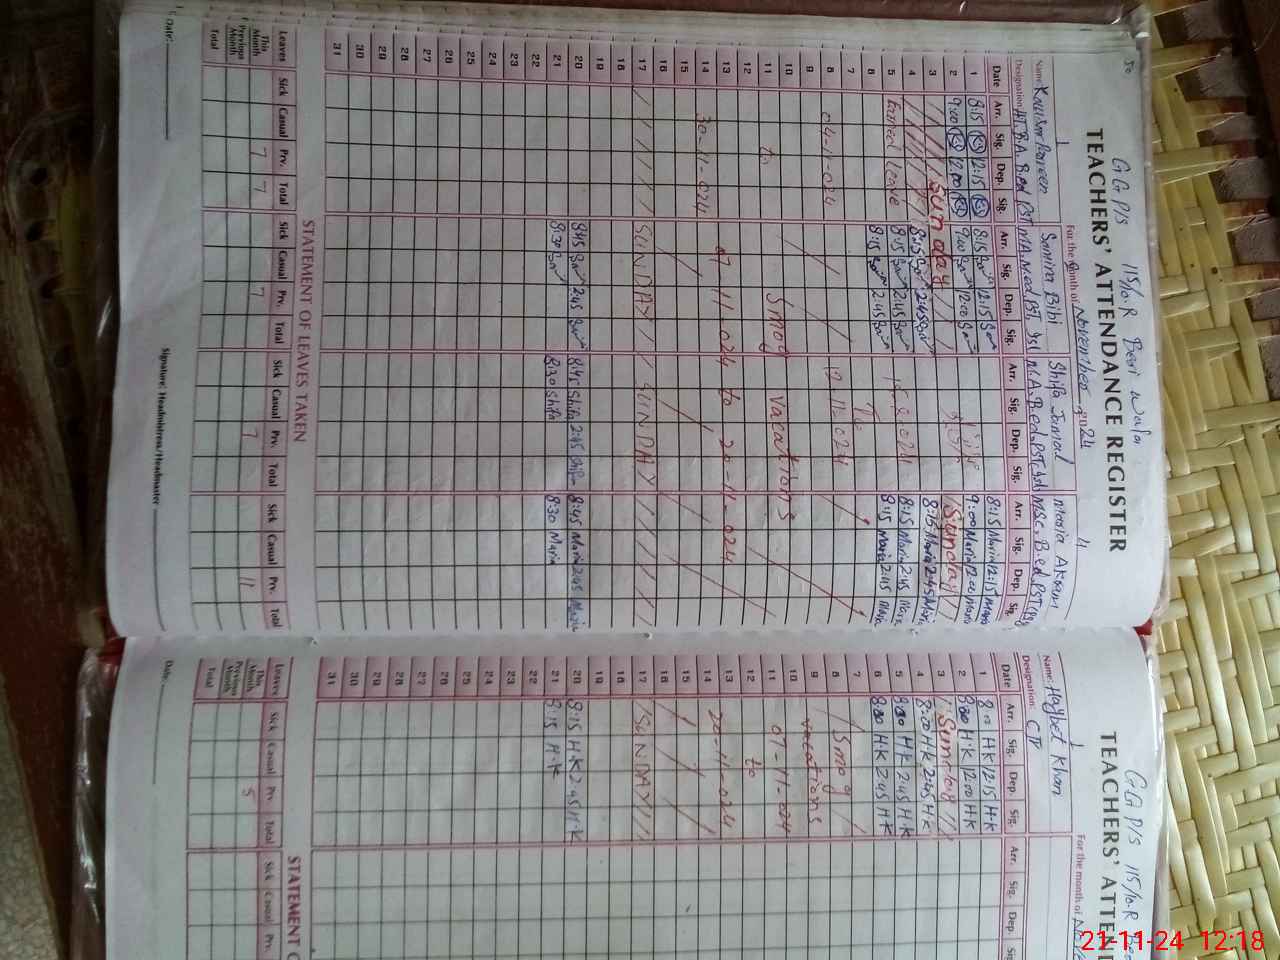 50
G G P/S 115/10.R Beri wala
TEACHERS' ATTENDANCE REGISTER
For the Month of November 2024
1
4
Name: Kousar Parveen
Samina Bibi
Shifa Jamal
Maria Akram
Designation:
Date Arr. Sig. Dep. Sig. Arr. Sig. Dep. Sig. Arr. Sig. Dep. Sig. Arr. Sig. Dep. Sig.
1 8:15 12:15 8:15 12:15 8:15 Maria 12:15
2 9:00 12:00 9:00 12:00 9:00 Maria 12:00
3 Sunday Sunday
4 8:15 2:45 8:15 Maria 2:45
5 Earned Leave 8:15 2:45 8:15 Maria 2:45
6 8:15 2:45 8:15 Maria 2:45
7
8 04-11-024 12.11.024
9
10 Smog vacations
11 to
12
13 07-11-024 to 20-11-024
14 30-11-024
15
16
17 SUNDAY SUNDAY
18
19
20 8:45 2:45 8:45 Shifa 2:45 Shifa 8:45 Maria 2:45 Maria
21 8:30 8:30 Shifa 8:30 Maria
22
23
24
25
26
27
28
29
30
31
STATEMENT OF LEAVES TAKEN
Leaves Sick Casual Prv. Total Sick Casual Prv. Total Sick Casual Prv. Total Sick Casual Prv. Total
This Month 7 7 7 7 11
Previous Month
Total
Date: Signature: Headmistress/Headmaster
G G P/S 115/10.R
TEACHERS' ATTEN
For the month of
1
Name: Haybet Khan
Designation: CIV
Date Arr. Sig. Dep. Sig. Arr. Sig. Dep. Sig.
1 8:00 H.K 12:15 H.K
2 8:30 H.K 12:00 H.K
3 Sunday
4 8:00 H.K 2:45 H.K
5 8:00 H.K 2:45 H.K
6 8:00 H.K 2:45 H.K
7
8 Smog
9 vacations
10
11 07-11-024
12 to
13
14 20-11-024
15
16
17 SUNDAY
18
19
20 8:15 H.K 2:45 H.K
21 8:15 H.K
22
23
24
25
26
27
28
29
30
31
STATEMENT O
Leaves Sick Casual Prv. Total Sick Casual Prv.
This Month 5
Previous Month
Total
Date:
21-11-24 12:18